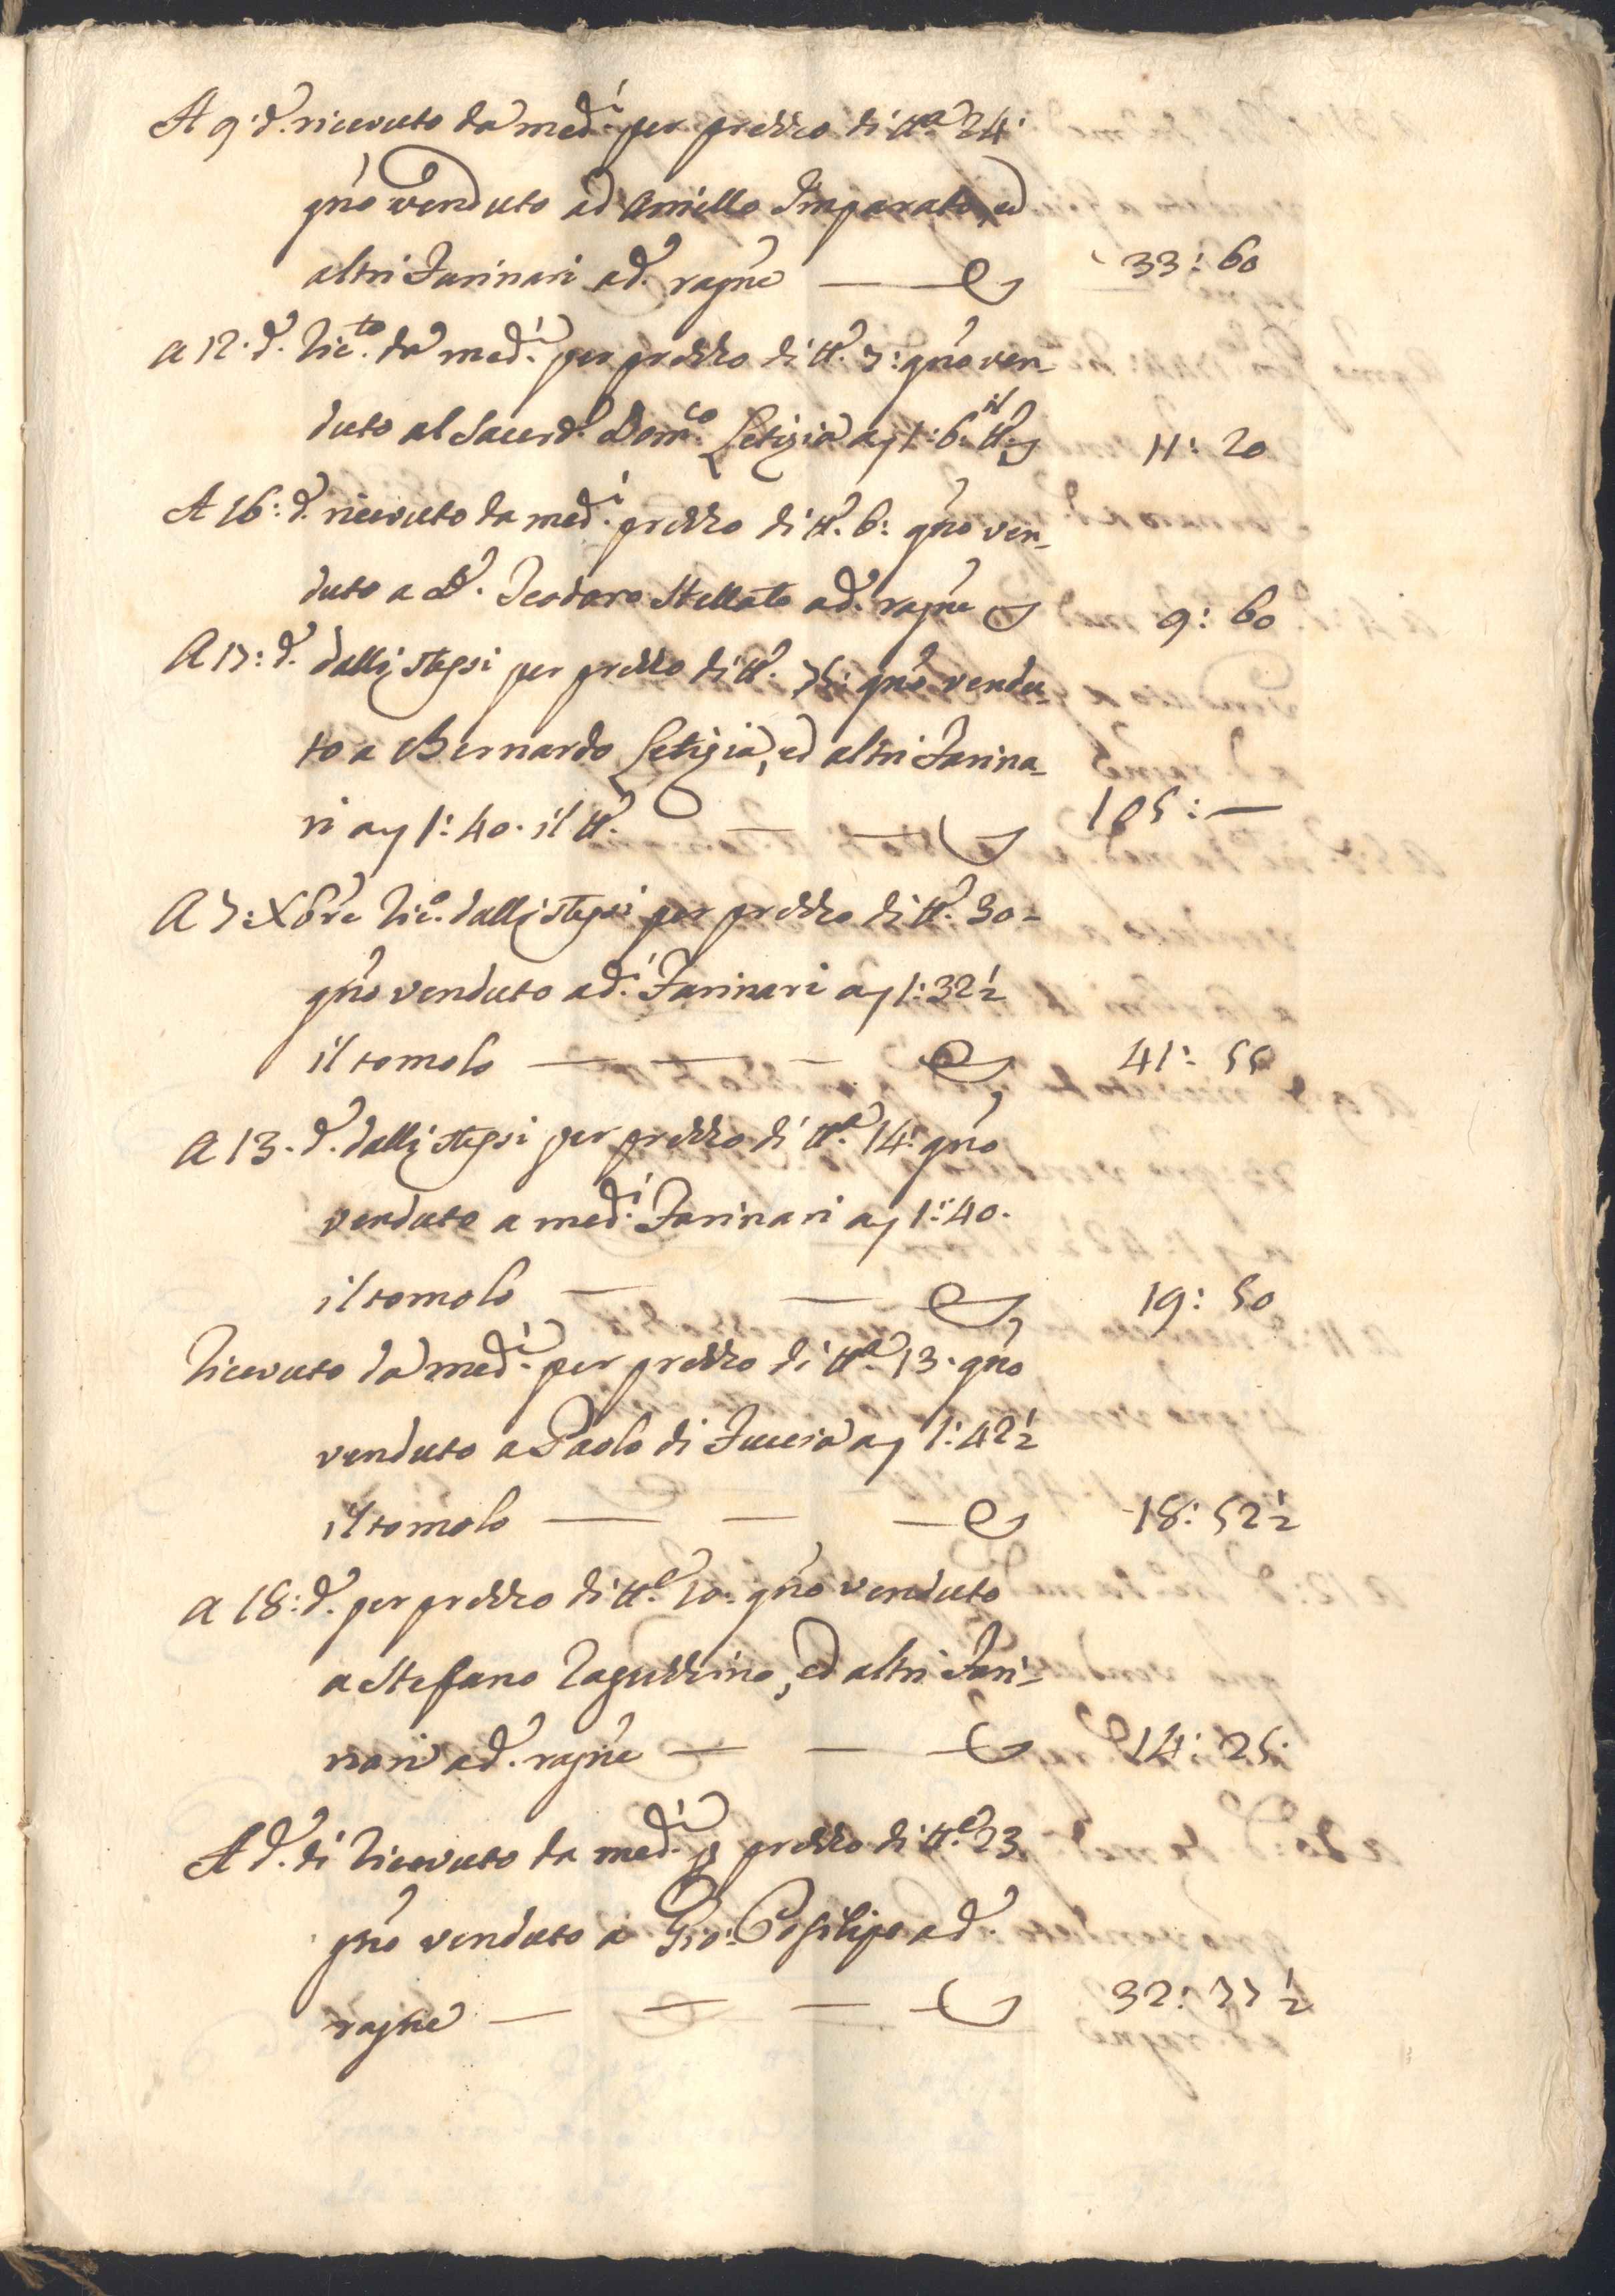 A 9: d.° ricevuto da med.i per prezzo di tt.a 24:
gño venduto ad Aniello Imparato, ed
altri Farinari ad.a ragñe — 33: 60
a 12: d.° Ric.to da med.i per prezzo di tt.a 7: gño ven-
duto al Sacerd.e Dom.co Letizia a 1: 6: il tt.o 11: 20
A 16: d.° ricevuto da med.i prezzo di tt.a 6: gño ven-
duto a D. Teodoro Stellato ad.a ragñe 9: 60
A 17: d.° dalli stessi per prezzo di tt.a 75: gño vendu-
to a Bernardo Letizia, ed altri Farina-
ri a 1: 40. il tt.o — — 105: —
A 7: Xbre Ric.o dalli stessi per prezzo di tt.a 30-
gño venduto ad.i Farinari a 1: 32 1/2
il tomolo — — — 41: 55
A 13. d.° dalli stessi per prezzo di tt.a 14: gño
venduto a med.i Farinari a 1: 40.
il tomolo — — 19: 50
Ricevuto da med.i per prezzo di tt.a 13. gño
venduto a Paolo di Fuccia a 1: 42 1/2
il tomolo — — — 18: 52 1/2
A 18: d.° per prezzo di tt.a 10: gño venduto
a Stefano Raguzzino, ed altri Fari-
nari ad.a ragñe — — — 14: 25.
A d.° dì Ricevuto da med.i p prezzo di tt.a 23
gño venduto a Gio: Posilipo ad.a
ragñe — — — — 32: 77 1/2